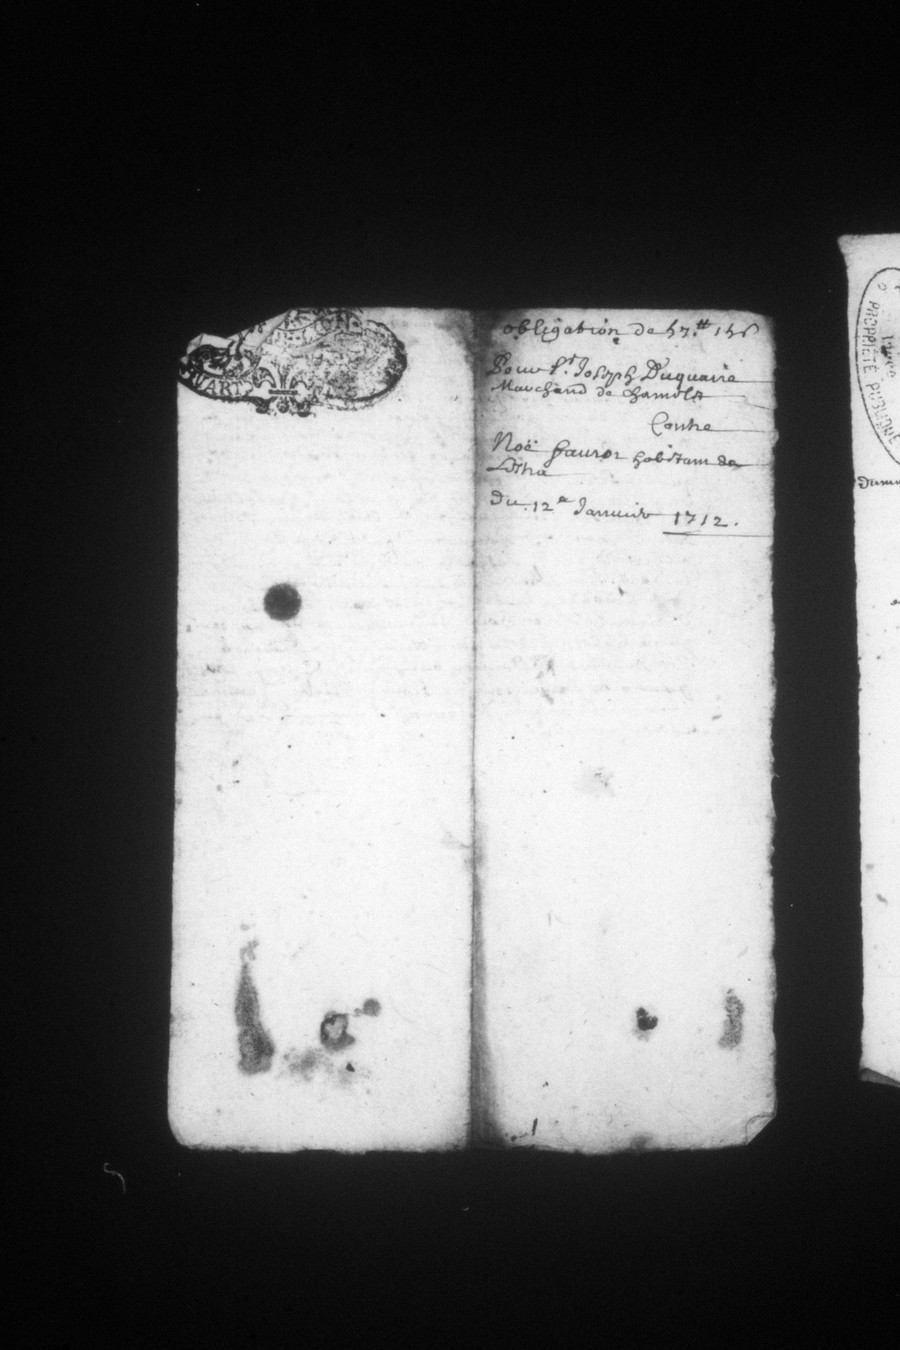 QUART
obligation de 57.ᵗᵗ 15ˢ
Pour Sr. Joseph Duquaire
Marchand de
Contre
Noë habitant de
du. 12e Janvier 1712.
PROPRIÉTÉ PUBLIQUE